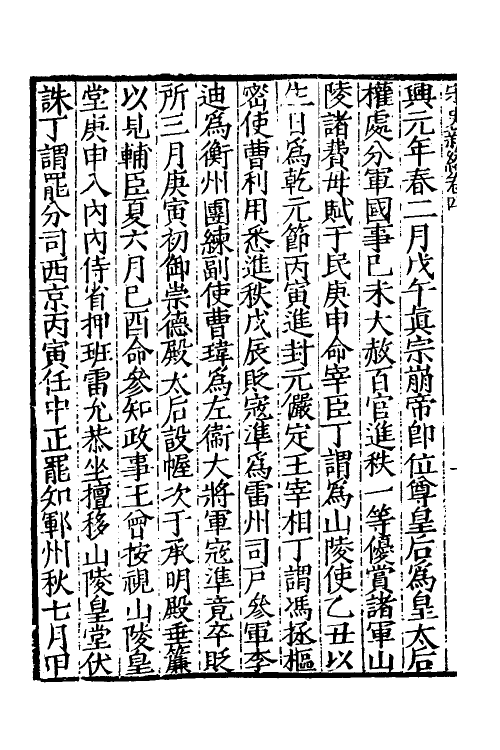 宋史新編卷四
興元年春二月戊午眞宗崩帝卽位尊皇后爲皇太后
權處分軍國事己未大赦百官進秩一等優賞諸軍山
陵諸費毋賦于民庚申命宰臣丁謂爲山陵使乙丑以
生日爲乾元節丙寅進封元儼定王宰相丁謂馮拯樞
密使曹利用悉進秩戊辰貶寇準爲雷州司戶參軍李
迪爲衡州團練副使曹瑋爲左衞大將軍寇準竟卒貶
所三月庚寅初御崇德殿太后設幄次于承明殿垂簾
以見輔臣夏六月己酉命參知政事王曾按視山陵皇
堂庚申入內內侍省押班雷允恭坐擅移山陵皇堂伏
誅丁謂罷分司西京丙寅任中正罷知鄆州秋七月甲